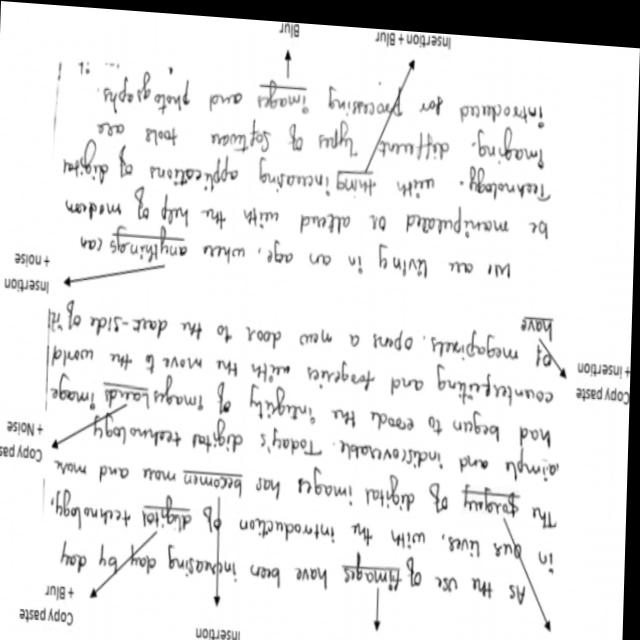 Insertion
Copy paste
+ Blur
As the use of images have been increasing day by day
in our lives, with the introduction of digital technology,
The forgery of digital images has becomen more and more
simple and indiscoverable. Today's digital technology
Copy pas
+ Noise
had begun to erode the integrity of images Lands image
Copy paste
+ Insertion +
counterfeiting and forgeries with the move to the world
of megapixels, opens a new door to the dark-side of it
have
Insertion
+ noise
We are living in an age, where anythings can
be manipulated or altered with the help of modern
Technology. with thing increasing applications of digital
Imaging, different Types of Software tools are
introduced for processing images and photographs.
Insertion + Blur
Blur